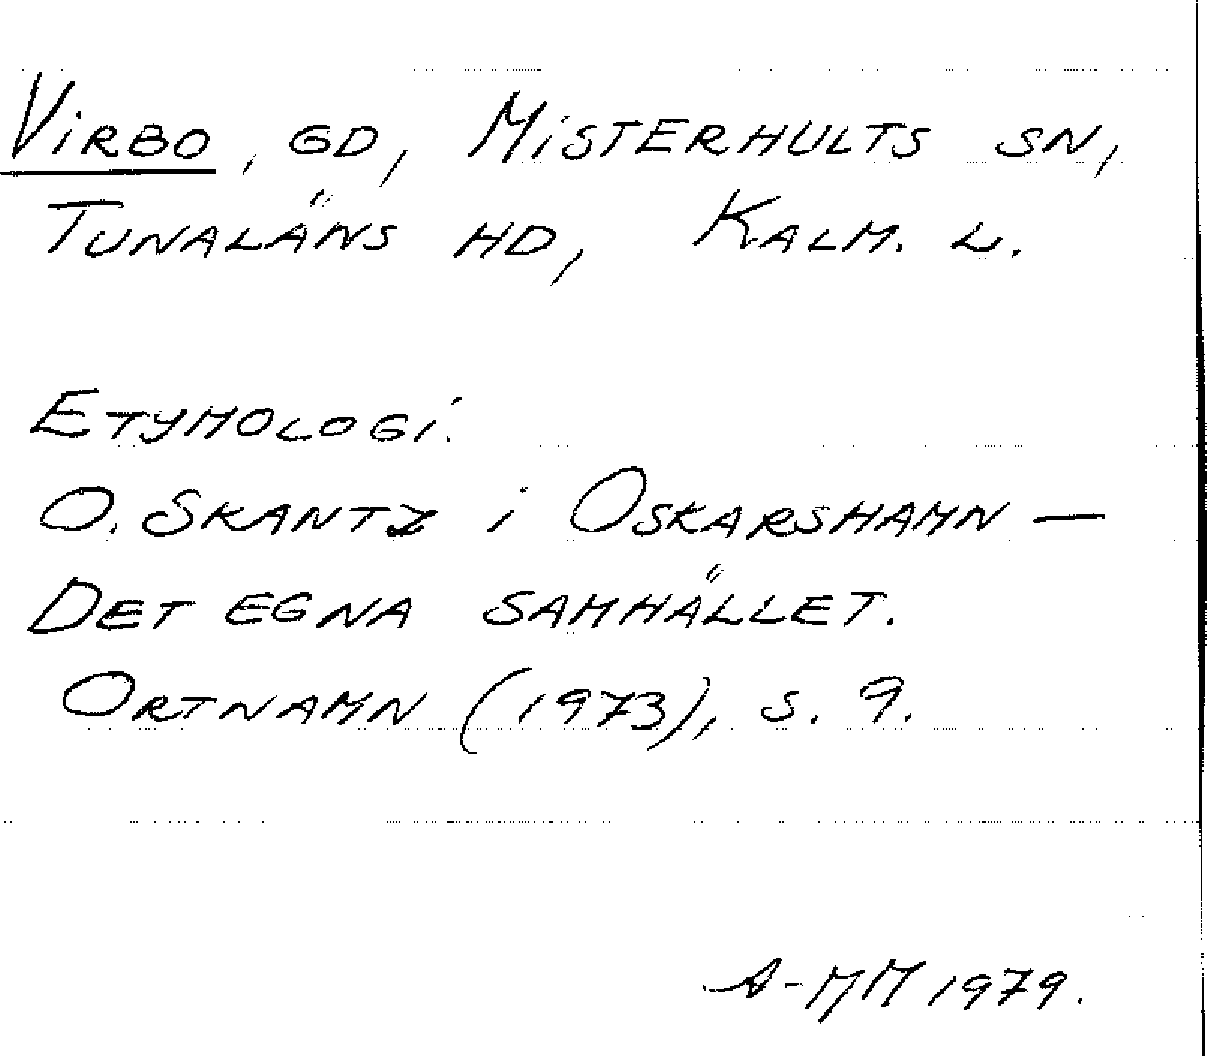 Virbo, gd, Misterhults sn,
Tunaläns hd, Kalm. L.
Etymologi.
O. Skantz i Oskarshamn –
Det egna samhället.
Ortnamn (1973), s. 9.
A-MM 1979.